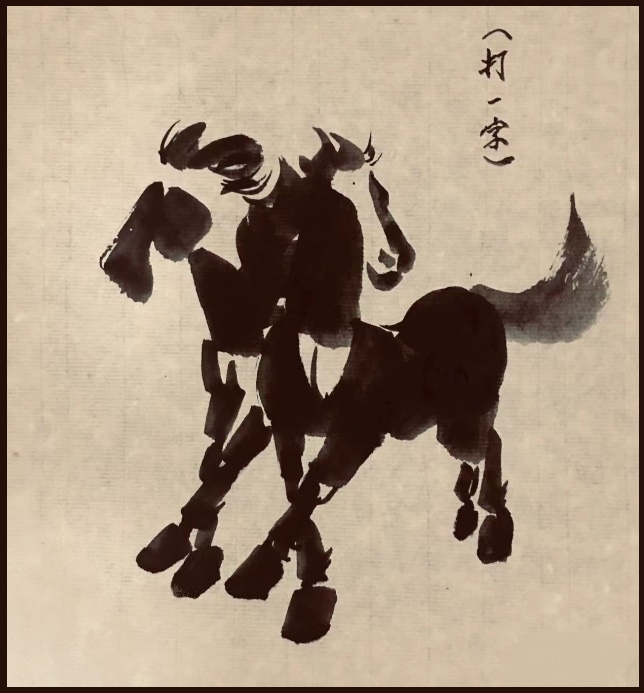 （打一字）